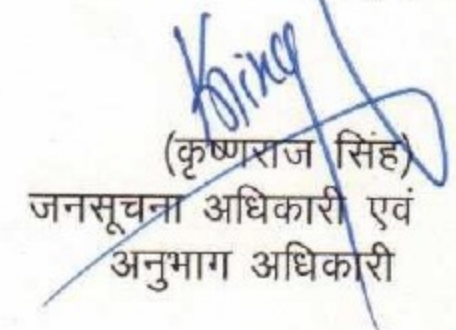 (कृष्णराज सिंह)
जनसूचना अधिकारी एवं
अनुभाग अधिकारी